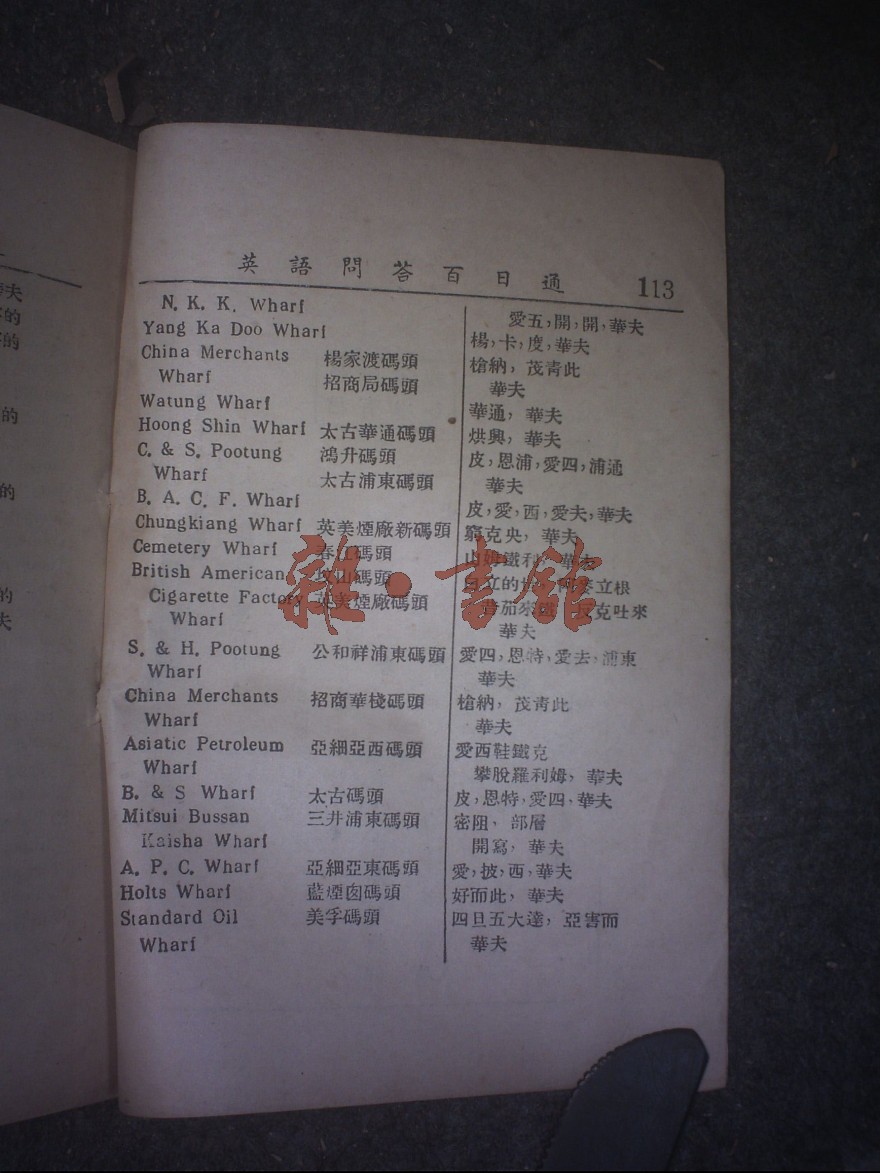 英語問答百日通 113
N. K. K. Wharf 愛五,開,開,華夫
Yang Ka Doo Wharf 楊,卡,度,華夫
China Merchants 楊家渡碼頭 槍納,茂靑此
Wharf 招商局碼頭 華夫
Watung Wharf 華通,華夫
Hoong Shin Wharf 太古華通碼頭 烘興,華夫
C. & S. Pootung 鴻升碼頭 皮,恩浦,愛四,浦通
Wharf 太古浦東碼頭 華夫
B. A. C. F. Wharf 皮,愛,西,愛夫,華夫
Chungkiang Wharf 英美煙廠新碼頭 窮克央,華夫
Cemetery Wharf 春江碼頭 鐵利,華夫
British American 墳山碼頭 立根
Cigarette Factory 英美煙廠碼頭 克吐來
Wharf 華夫
S. & H. Pootung 公和祥浦東碼頭 愛四,恩特,愛去,浦東
Wharf 華夫
China Merchants 招商華棧碼頭 槍納,茂靑此
Wharf 華夫
Asiatic Petroleum 亞細亞西碼頭 愛西鞋鐵克
Wharf 攀脫羅利姆,華夫
B. & S Wharf 太古碼頭 皮,恩特,愛四,華夫
Mitsui Bussan 三井浦東碼頭 密阻,部層
Kaisha Wharf 開寫,華夫
A. P. C. Wharf 亞細亞東碼頭 愛,披,西,華夫
Holts Wharf 藍煙囱碼頭 好而此,華夫
Standard Oil 美孚碼頭 四旦五大達,亞害而
Wharf 華夫
雜·書館
夫
的
的
的
的
的
夫